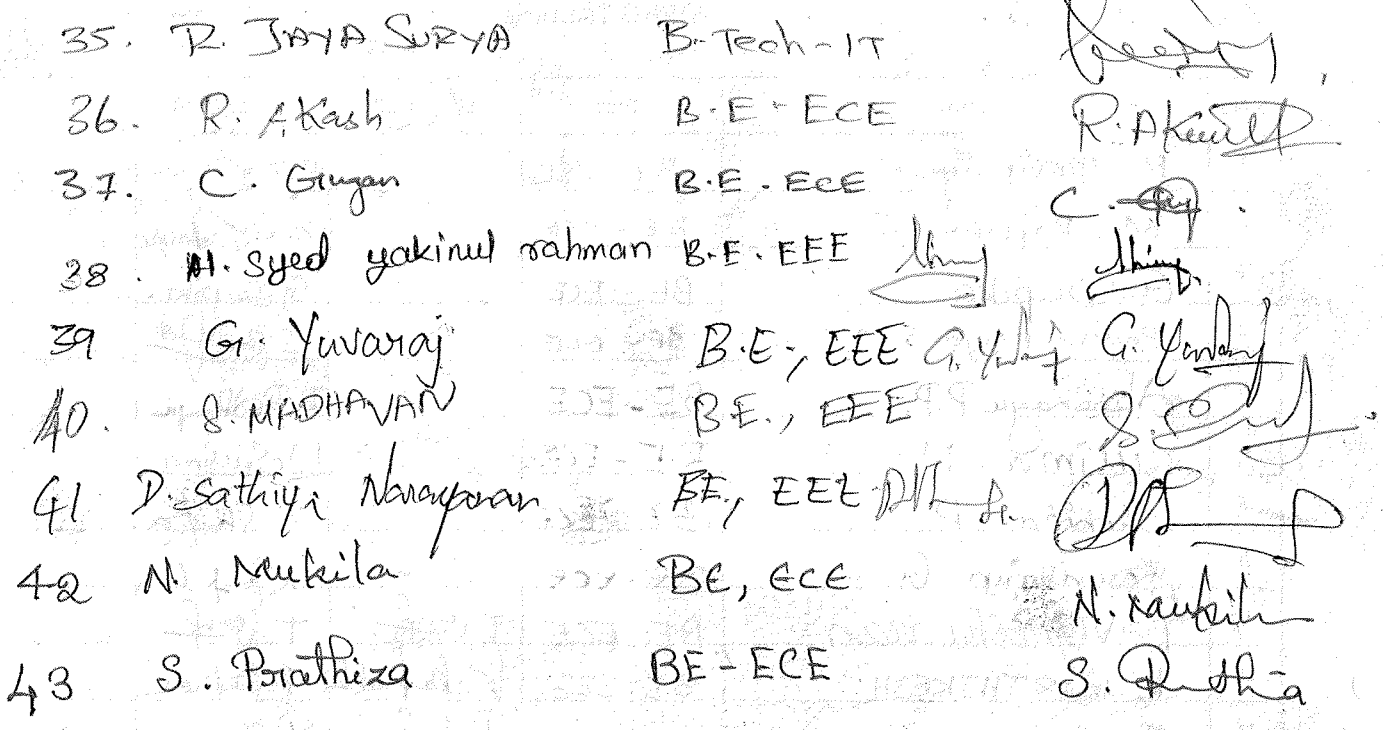 35. R. JAYA SURYA B.Tech-IT
36. R. Akash B.E - ECE R. Akash
37. C. Gugan B.E. ECE C.
38. H. Syed yakinul rahman B.E. EEE
39 G. Yuvaraj B.E., EEE G. Yuvaraj G. Yuvaraj
40. S. MADHAVAN B.E., EEE S.
41 D. Sathiya Narayanan BE., EEE
42 N. Mukila BE, ECE N. Mukila
43 S. Prathiza BE - ECE S. Prathia